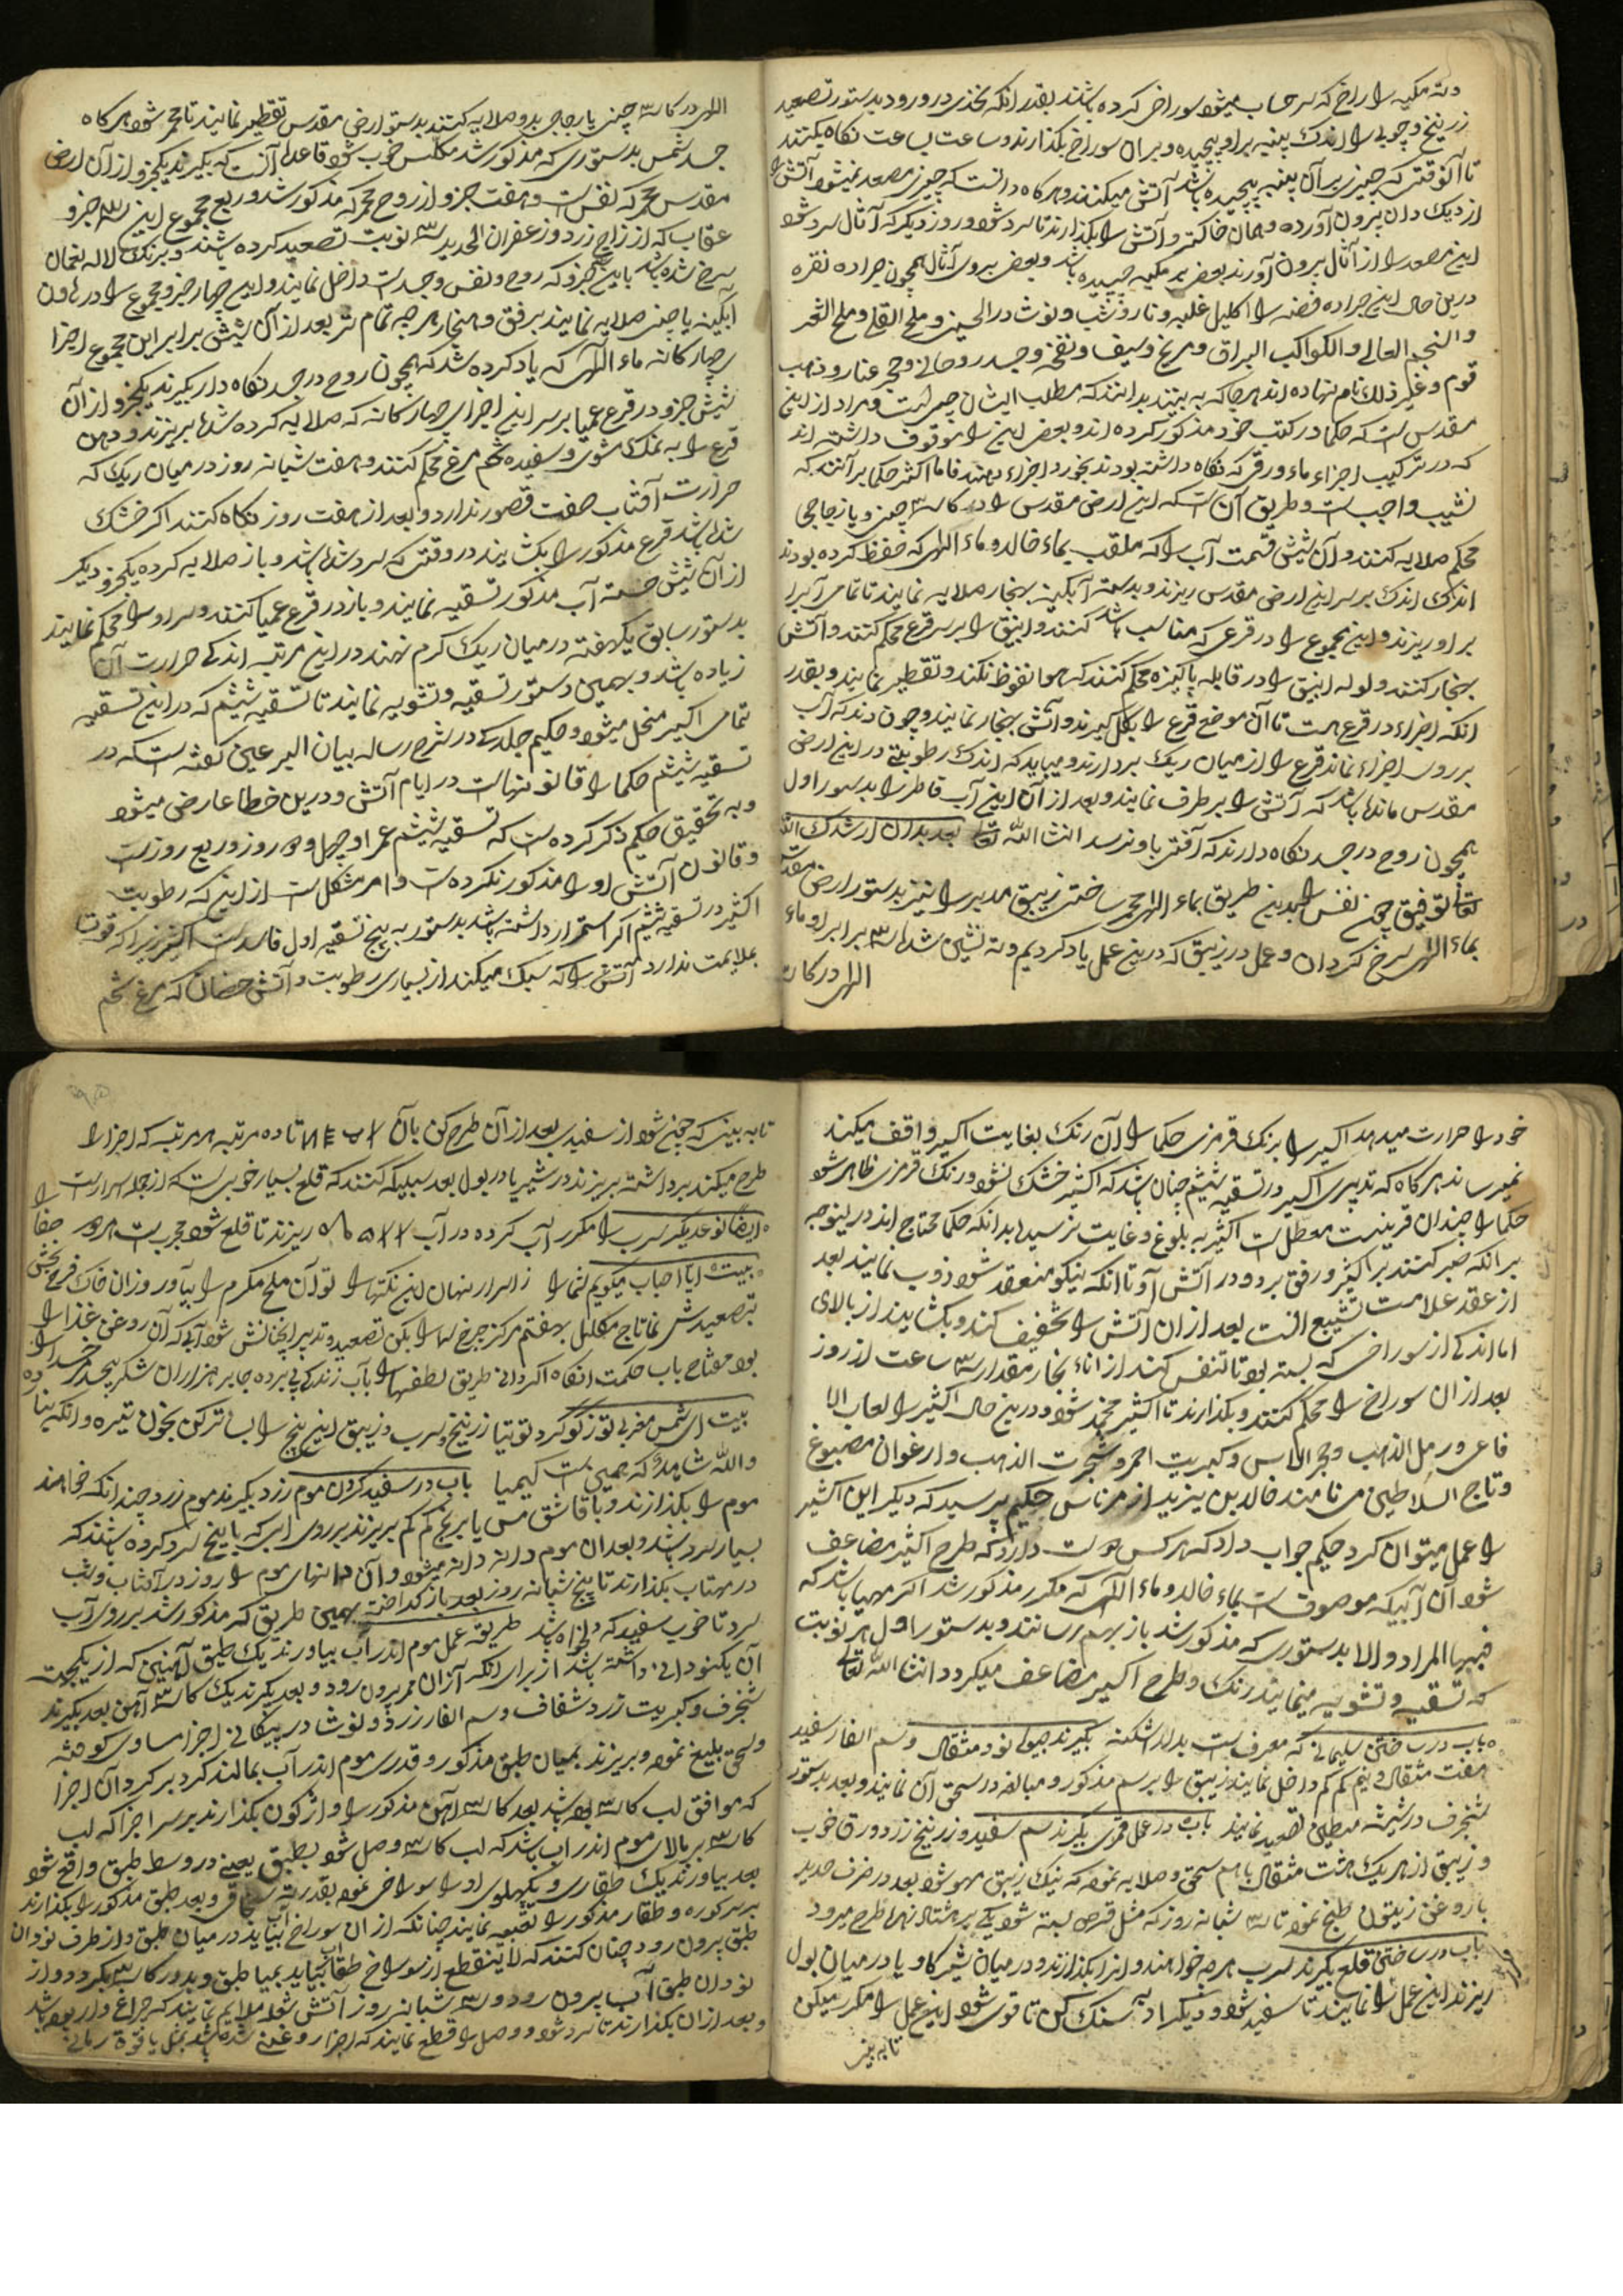 و ته مکبه را راخ که سر حساب میشود سوراخی کرده باشند بقدر انکه نخذی در و رود بدستور تصعید
زرنیخ و چوبی را اندک پنبه بر او پیچیده و بر ان سوراخ بگذارند و ساعت بساعت نگاه میکنند
تا آنوقتی که چیزی بر آن پنبه پیچیده باشد آتش میکنند و هر گاه دانست که چیزی مصعد نمیشود آتش را
از دیک دان بیرون آورده و همان خاکستر و آتش را بگذارند تا سرد شود و روز دیگر که آثال سرد شود
این مصعد را از آثال بیرون آورند بعضی بر مکبه چسپیده باشد و بعضی بیرون آثال همچون براده نقره
درین حال این براده فضه را اکلیل غلبه و تا روشب و نوشادر الحسن و ملح القلی و ملح الشعر
والنجم العالی والکواکب البراق و مریخ و سیف و نفخه و جسد روحانی و حجر عنار و ذهب
قوم و غیر ذلک نام نهاده اند هر جا که به بینند بدانند که مطلب ایشان چیست و مراد از این
مقدس است که حکما در کتب خود مذکور کرده اند و بعضی این را موقوف داشته اند
که در ترکیب اجزاء ماء ورقی که نگاه داشته بودند بخورد اجزاء دهند فاما اکثر حکما بر آنند که
نشیب واجبست و طریق آن است که این ارض مقدس را در کاسه چینی و یا زجاجی
محکم صلایه کنند و آن شیش قسمت آب را که ملقب بماء خالد و ماء الهی که حفظ کرده بودند
اندک اندک بر سر این ارض مقدس ریزند و بدسته آبگینه بهنجار صلایه نمایند تا تمامی آبرا
بر او ریزند و این مجموع را در قرعی که مناسب باشد کنند و انبیق را بر سر قرع محکم کنند و آتش
بهنجار کنند و لوله انبیق را در قابله پاکیزه محکم کنند که هوا نفوظ نکند و تقطیر نمایند و بقدر
انکه اجزاء در قرع هست تا آن موضع قرع را بگل گیرند و آتش بهنجار نمایند و چون دند که آب
بر روی اجزاء نماند قرع را از میان ریک بردارند و میباید که اندک رطوبتی در این ارض
مقدس مانده باشد که آتش را بر طرف نمایند و بعد از آن این آب قاطر را بدستور اول
همچون روح در جسد نگاه دارند که آفتی باو نرسد انشاالله تعالی بعد بدان ارشدک الله
تعالی توفیق چون نفس را بدین طریق بماء الهی محمر ساختی زیبق مدبر را نیز بدستور ارض مقدس
بماء الهی سرخ گردان و عمل در زیبق که درین عمل یاد کردیم و ته نشین شده سه برابر او ماء
الهی در کاسه
الهی در کاسه چینی یا زجاجی بدو صلایه کنند بدستور ارض مقدس تقطیر نمایند تا محمر شود هر گاه
جسد شمس بدستوری که مذکور شد مکلس خوب شود قاعده آنست که بگیرند یکجزو از آن ارض
مقدس محمر که نفس است و هفت جزو از روح محمر که مذکور شد و ربع مجموع این سه جزو
عقاب که از زاج زرد و زعفران الحدید سه نوبت تصعید کرده باشند و برنک لاله نعمان
سرخ شده باشد باین سه جزو که روح و نفس و جسد است داخل نمایند و این چهار جزو مجموع را در هاون
آبگینه یا چینی صلایه نمایند برفق و هنجار هر چه تمام تر بعد از آن شیش برابر این مجموع اجزا
چهارکانه ماء الهی که یاد کرده شد که همچون روح در جسد نگاه دار بگیرند یکجزو از آن
شیش جزو در قرع عمیا بر سر این اجزای چهارکانه که صلایه کرده شد بریزند و دهن
قرع را به نمک شوی و سفیده تخم مرغ محکم کنند و هفت شبانه روز در میان ریک که
حرارت آفتاب صفت قصور ندارد و بعد از هفت روز نگاه کنند اگر خشک
شده باشد قرع مذکور را بکشایند در وقتی که سرد شده باشد و باز صلایه کرده یکجزو دیگر
از آن شیش حصه آب مذکور تسقیه نمایند و باز در قرع عمیا کنند و سر او را محکم نمایند
بدستور سابق یکهفته در میان ریک گرم نهند در این مرتبه اندکی حرارت آن
زیاده باشد و بهمین دستور تسقیه و تشویه نمایند تا تسقیه شیشم که در این تسقیه
تمامی اکسیر منحل میشود و حکیم جلدکی در شرح رساله بیان البر عین گفته است که در
تسقیه شیشم حکما را قانونهاست در ایام آتش و درین خطا عارض میشود
و به تحقیق حکیم ذکر کرده است که تسقیه شیشم عمر او چهل و دو روز و ربع روز است
و قانون آتش او را مذکور نکرده است و امر مشکل است از این که رطوبت
اکثیر در تسقیه شیشم اگر استمرار داشته باشد بدستور به پنج تسقیه اول فاسد است اکثیر زیرا که قوتها
بملایمت ندارد آتش را که سبک میکند از بسیاری رطوبت و آتش حضان که مرغ تخم
خود را حرارت میدهد اکسیر را برنک قرمزی حکما را آن رنک بغایت اکسیر واقف میکند
نمیرساند هر گاه که تدبیر اکسیر در تسقیه شیشم چنان باشد که اکثیر خشک نشود و رنک قرمزی ظاهر شود
حکما را چندان فرینست معطل است اکثیر به بلوغ و غایت نرسیده بدانکه حکما محتاج اند در ینوجه
بر انکه صبر کنند بر اکثیر و رفق برد و در آتش او تا انکه نیکو منعقد شود و ذوب نمایند بعد
از عقد علامت تشبیع انست بعد از ان آتش را تخفیف کنند و بکشایند از بالای
اما اندکی از سوراخی که بسته بود تا تنفس کند از اناء بخار مقدار سه ساعت از روز
بعد از ان سوراخ را محکم کنند و بگذارند تا اکثیر منجمد شود و درین حال اکثیر را لعاب الا
فاعی و رمل الذهب و حجر الماس و کبریت احمر و شجرت الذهب و ارغوان مصبوغ
و تاج السلاطین می نامند خالد بن یزید از مرناس حکیم پرسید که دیگر این اکثیر
را عمل میتوان کرد حکیم جواب داد که هر کس هوست دارد که طرح اکثیر مضاعف
شود آن آبیکه موصوف است بماء خالد و ماء الهی که مکرر مذکور شد اگر مهیا باشد که
فبها المراد والا بدستوری که مذکور شد باز بهم رسانند و بدستور اول هر نوبت
که تسقیه و تشویه مینمایند رنک و طرح اکسیر مضاعف میگردد انشاالله تعالی
باب در ساختن سلیمانی که معروفست بدار اشکنه بگیرند جیوه نود مثقال و سم الفار سفید
هفت مثقال و نیم کم کم داخل نمایند زیبق را برسم مذکور و مبالغه در سحق آن نمایند و بعد بدستور
شنجرف در شیشه مطین تصعید نمایند باب در عمل قمری بگیرند سم سفید و زرنیخ زرد ورقی خوب
و زیبق از هر یک هشت مثقال با هم سحق و صلایه نموده که نیک زیبق مهو شود بعد در ظرف حدید
با روغن زیتون طبخ نمود تا سه شبانه روز که مثل قرص بسته شود یکی بر هشتاد زهره طرح میرود
باب در ساختن قلع بگیرند سرب هر چه خواهند و انرا بگدازند و در میان شیر گاو و یا در میان بول
ریزند این عمل را نمایند تا سفید شود و دیگر اد به سنک کن تا قوی شود این عمل را مکرر میکن
تا به بینی
تا به بینی که چون شود از سفیدی بعد از آن طرح کن بآن تا ده مرتبه هر مرتبه که اجزا را
طرح میکند برداشته بریزند در شیر یا در بول بعد سبیکه کنند که قلع بسیار خوبیست که از جمله اسرار است
ایضا نوعدیگر سرب را مکرر آب کرده در آب ۷۷۵۵ ریزند تا قلع شود مجربست
بیت ایا احباب میگویم شما را ز اسرار نهان این نکتها را تو آن ملح مکرم را بیاور وزان خاک فرح بخش
بتصعیدش نما تاج مکلل بهفتم مرکز چرخ سما را بکن تصعید و تدبیر آنچنانش شود آبی که آن روغن غذا را
بود مفتاح باب حکمت انگاه اگر دانی طریق لطفها را بآب زندگی پی برده جابر هزاران شکر بیحد
بیت ای شمس مغربی تو ز گوگرد توتیا زرنیخ و سرب و زیبق این پنج را بساز ترکن بخون تیره و انگه بنا
والله شاهد که همین است کیمیا باب در سفید کردن موم زرد بگیرند موم زرد چندانکه خواهند
موم را بگدازند و با قاشق مس یا برنج کم کم بریزند بر روی ابی که با یخ سرد کرده باشند که
بسیار سرد باشد و بعد ان موم دانه دانه میشود و آن دانهای موم را روز در آفتاب و شب
در مهتاب بگذارند تا پنج شبانه روز بعد باز گداخت بهمین طریق که مذکور شد بر روی آب
سرد تا خوب سفید که دلخواه باشد طریقه عمل موم اندر آب بیاورند یک طبق آهنین که از یکجهت
آن یکنودانی داشته باشد از برای انکه آزان ممر بیرون رود و بعد بگیرند یک کاسه آهن بعد بگیرند
شنجرف و کبریت زرد شفاف و سم الفار زرد و نوشادر پیکانی اجزا مساوی کوفته
و سحق بلیغ نموده و بریزند بمیان طبق مذکور و قدری موم اندر آب بمالند گرد بر گرد آن اجزا
که موافق لب کاسه بوده باشد بعد کاسه آهن مذکور را واژگون بگذارند بر سر اجزا که لب
کاسه بر بالای موم اندر اب باشد که لب کاسه وصل شود بطبق یعنی در وسط طبق واقع شود
بعد بیاورند یک طقاری و یکپهلوی او را سوراخی نموده بقدر رشته و بعد طبق مذکور را بگذارند
بر سر کوره و طقار مذکور را تعبیه نمایند چنانکه از ان سوراخ آب بیاید در میان طبق و از طرف نودان
طبق بیرون رود چنان کنند که لاینقطع از سوراخ طقار آب بیاید بمیان طبق و بدور کاسه بگردد و از
نودان طبق آب بیرون رود و سه شبانه روز آتش شعله ملایم نمایند که چراغ وار بوده باشد
و بعد از ان بگذارند تا سرد شود و وصل را قطع نمایند که اجزا روغنی شده باشد مثل یاقوت رمانی